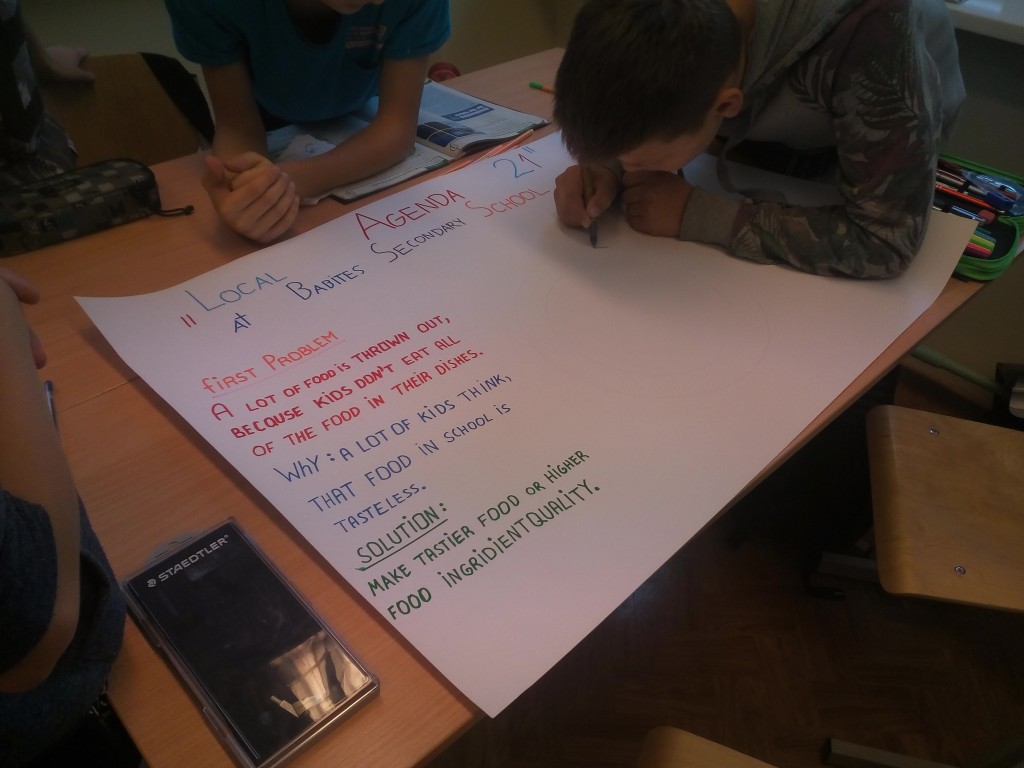 "LOCAL AGENDA 21"
AT BABITES SECONDARY SCHOOL
FIRST PROBLEM
A LOT OF FOOD IS THROWN OUT,
BECOUSE KIDS DON'T EAT ALL
OF THE FOOD IN THEIR DISHES.
WHY: A LOT OF KIDS THINK,
THAT FOOD IN SCHOOL IS
TASTELESS.
SOLUTION:
MAKE TASTIER FOOD OR HIGHER
FOOD INGRIDIENT QUALITY.
STAEDTLER